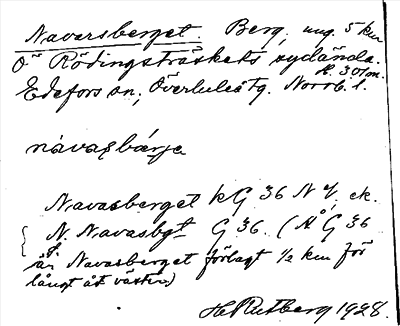 Navarsberget. Berg, ung. 5 km
Ö Rödingsträskets sydända.
H. 301 m.
Edefors sn, Överluleå tg. Norrb. l.
návasbärje
Navasberget kG 36 NV. ek.
N. Navasbgt G 36. (Å G 36
är Navasberget förlagt 1/2 km för
långt åt väster)
H. Rutberg 1928.